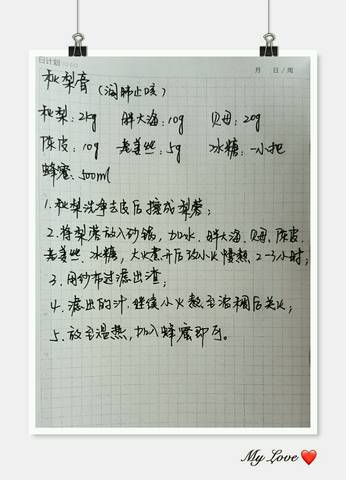 日计划
月 日/周
秋梨膏(润肺止咳)
秋梨:2kg 胖大海:10g 贝母:20g
陈皮:10g 老姜丝:5g 冰糖:一小把
蜂蜜:500ml
1.秋梨洗净去皮后擦成梨蓉;
2.将梨蓉放入砂锅,加水、胖大海、贝母、陈皮、
老姜丝、冰糖,大火煮开后改小火慢熬2-3小时;
3.用纱布过滤出渣;
4.滤出的汁,继续小火熬至浓稠后关火;
5.放至温热,加入蜂蜜即可。
My Love